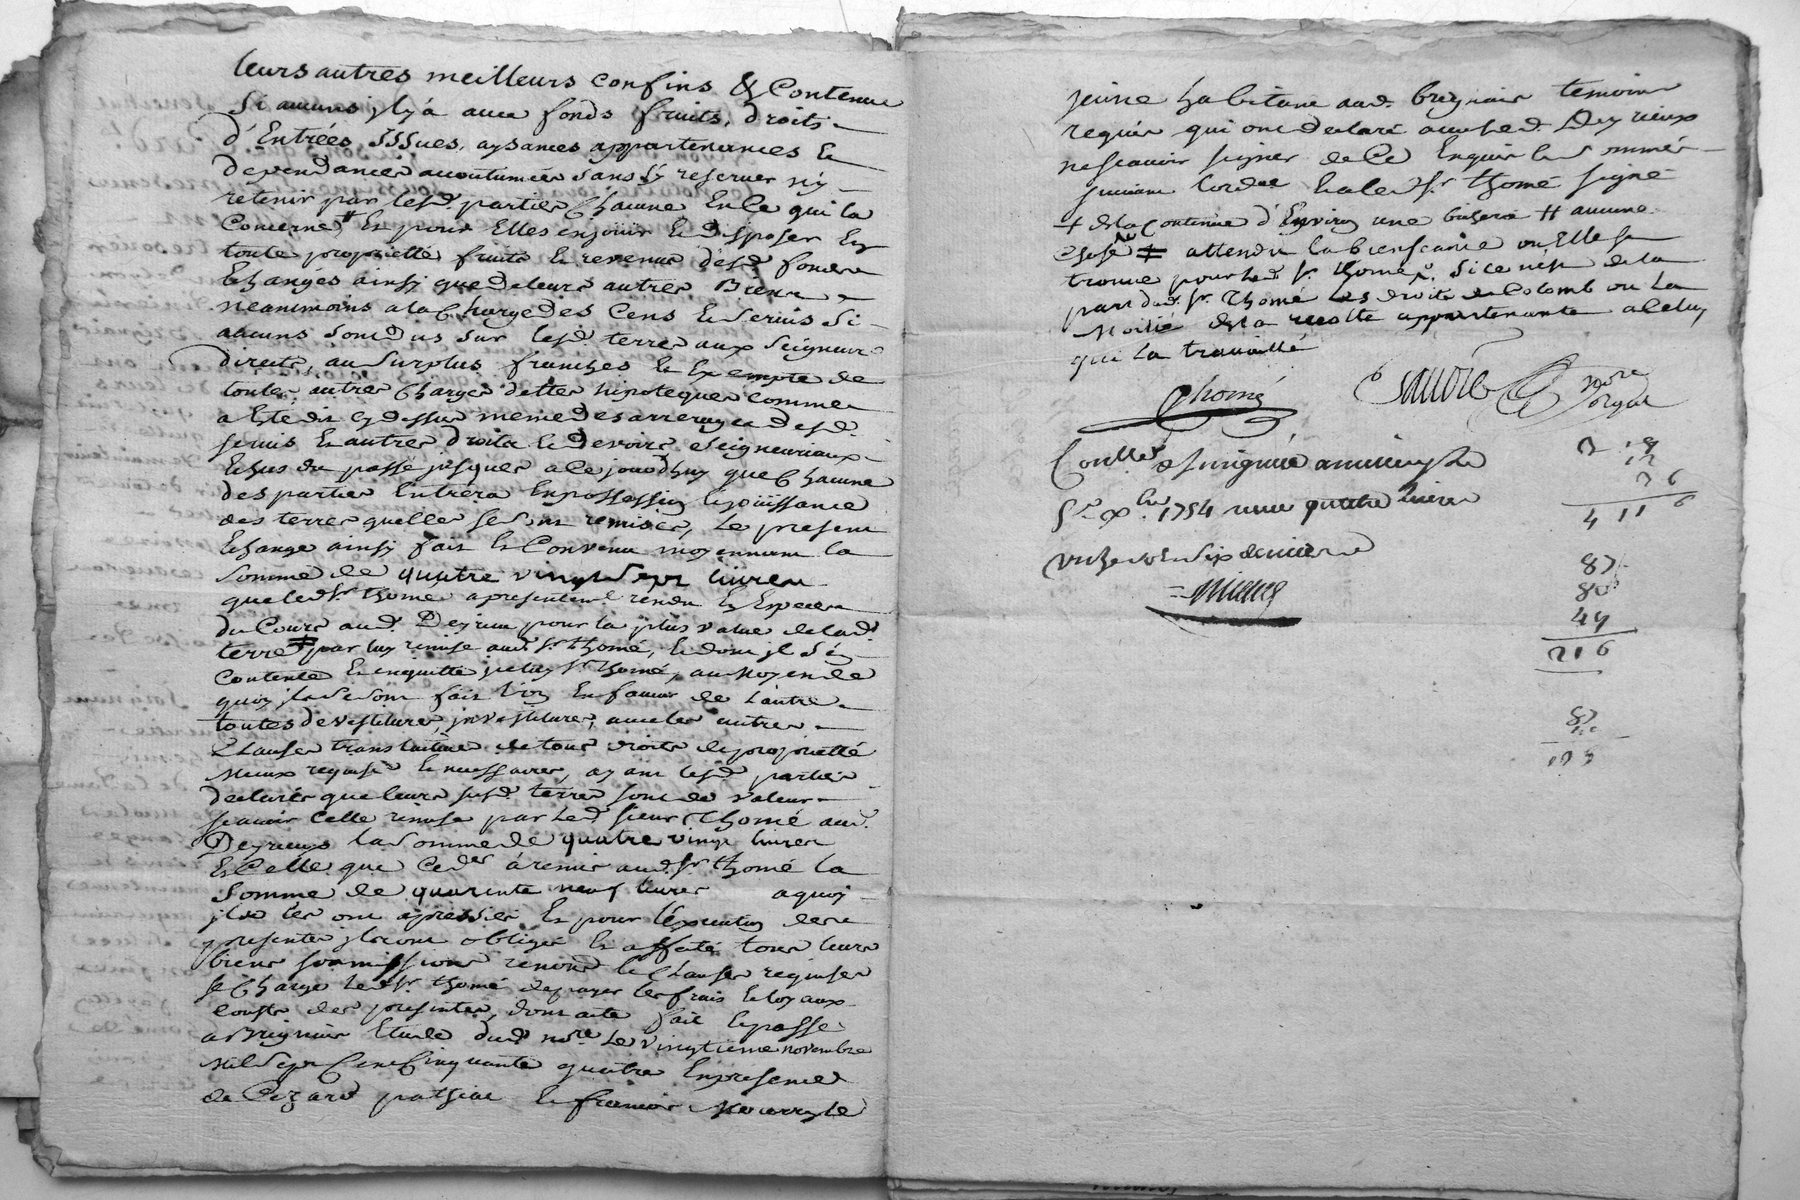 leurs autres meilleurs confins & Contenue
Si aucuns jl y à avec fonds fruits, droits
d'Entrées, Issues, aysances appartenances &
dependances accoutumées sans s'y reserver n'y
retenir par lesd. parties Chacune En Ce qui la
Concerne # Et pour Elles en jouir & disposer En
toute proprietté fruits & revenus desd. fonds
Echangés ainsy que de leurs autres Biens
neanmoins a la Charge des Cens & Servis Si
aucuns sont dus sur lesd. terres aux Seigneurs
directs, au Surplus franches & Exempte de
toutes autres Charges dettes hipoteques comme
a Eté dit cy dessus même des arrerages desd.
servis & autres droits & Devoirs Seigneuriaux
Echus du passé jusques a Ce jourdhuy que Chacune
des parties Entrera En possession & jouissance
des terres quelles se sont remises, Le present
Echange ainsy fait & Convenu moyennant la
somme de quatre vingt Sept livres
que led. Sr. Thomé a presentement rendu En Especes
du Cours aud. Deyrieux pour la plus value de lad.
terre ‡ par luy remise aud. Sr. Thomé, & dont jl s'en
Contente & en quitte jceluy Sr. Thomé, au Moyen de
quoy jls se sont fait l'un En faveur de l'autre
toutes devestitures, jnvestitures, avec les autres
Clauses translatives de tous droits de proprietté
Mieux requises & necessaires, ayant lesd. parties
declarés que leurs susd. terres sont de valeur
scavoir Celle remise par Led. Sieur Thomé aud.
Deyrieux la Somme de quatre vingt livres
Et Celle que Ceder à remis aud. Sr. Thomé la
Somme de quarante neuf livres a quoy
jls les ont apressiés Et pour l'Execution des
presentes jls ont obligés & affecté tous leurs
biens soumissions renonce. & Clauses requises
Se Charge Led. Sr. Thomé de payer les frais & loyaux
Cousts des presentes, dont acte fait & passé
a Brignais Etude dud. nore. Le vingtieme novembre
Mil Sept Cent Cinquante quatre En presence
de Cezard pathiac & francois
jeune habitant aud. brignais temoins
requis qui ont declaré avec led. Deyrieux
ne scavoir signer de Ce Enquis &
suivant l'ordce. & led. Sr. Thomé signé
+ de la Contenue d'Environ une bicherée # aucune
Chose ‡ attendu la bienseance ou Elle se
trouve pour led. Sr. Thomé, Si ce n'est de la
part dud. Sr. Thomé les droits de Colomb ou La
Moitié de la recolte appartenante a Celuy
qui la travaillé
Thomé Saudié nore
Royal
Conllé & jnsiné a
Sr. xbre 1754 reçu quatre livres
unze sols six deniers
4 11 6
87
80
49
216
87